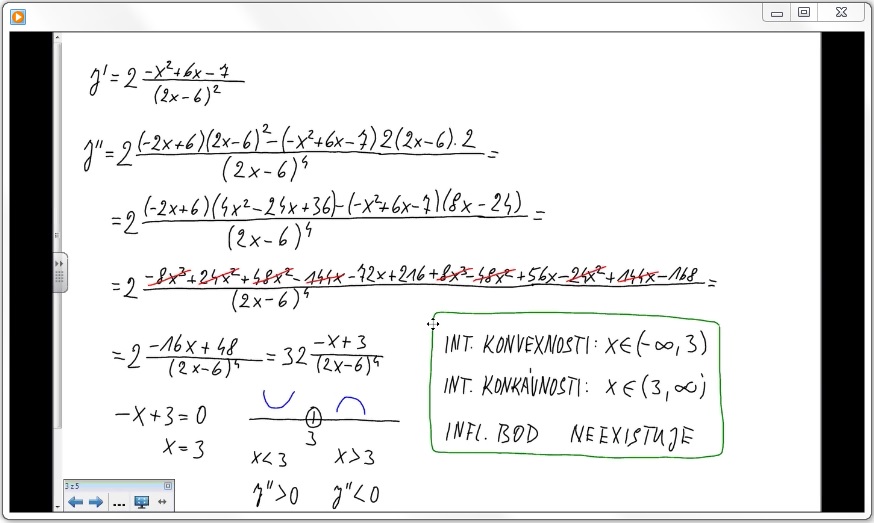 y' = 2 (-x²+6x-7)/(2x-6)²
y'' = 2 ((-2x+6)(2x-6)²-(-x²+6x-7)2(2x-6)·2)/(2x-6)⁴ =
= 2 ((-2x+6)(4x²-24x+36)-(-x²+6x-7)(8x-24))/(2x-6)⁴ =
= 2 (-8x³+24x²+48x²-144x-72x+216+8x³-48x²+56x-24x²+144x-168)/(2x-6)⁴ =
= 2 (-16x+48)/(2x-6)⁴ = 32 (-x+3)/(2x-6)⁴
-x+3=0
x=3
3
x<3 x>3
y''>0 y''<0
INT. KONVEXNOSTI: x∈(-∞,3)
INT. KONKÁVNOSTI: x∈(3,∞)
INFL. BOD NEEXISTUJE
3 z 5